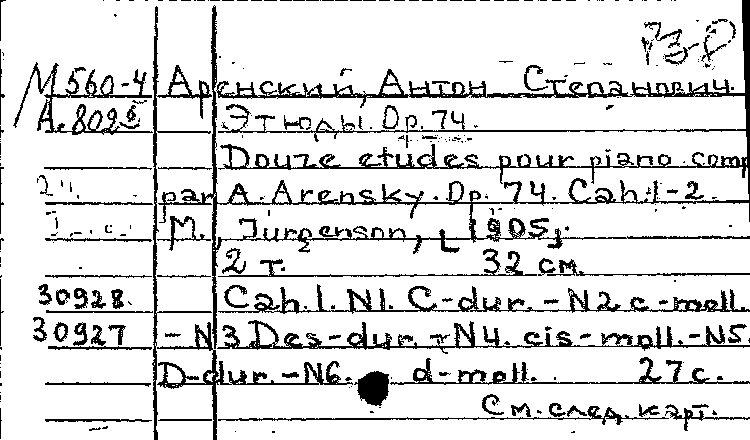 РЗ-8
М 560-4 Аренский, Антон Степанович.
А.802 Этюды. Op. 74.
Douze etudes pour piano comp
par A. Arensky. Op. 74. Cah.1-2.
M., Jurgenson, [1905].
2 т. 32 см.
30928. Cah.1. N1. C-dur. - N2 c-moll.
30927 - N3 Des-dur. - N4. cis-moll. - N5.
D-dur. - N6. d-moll. 27 с.
См. след. карт.